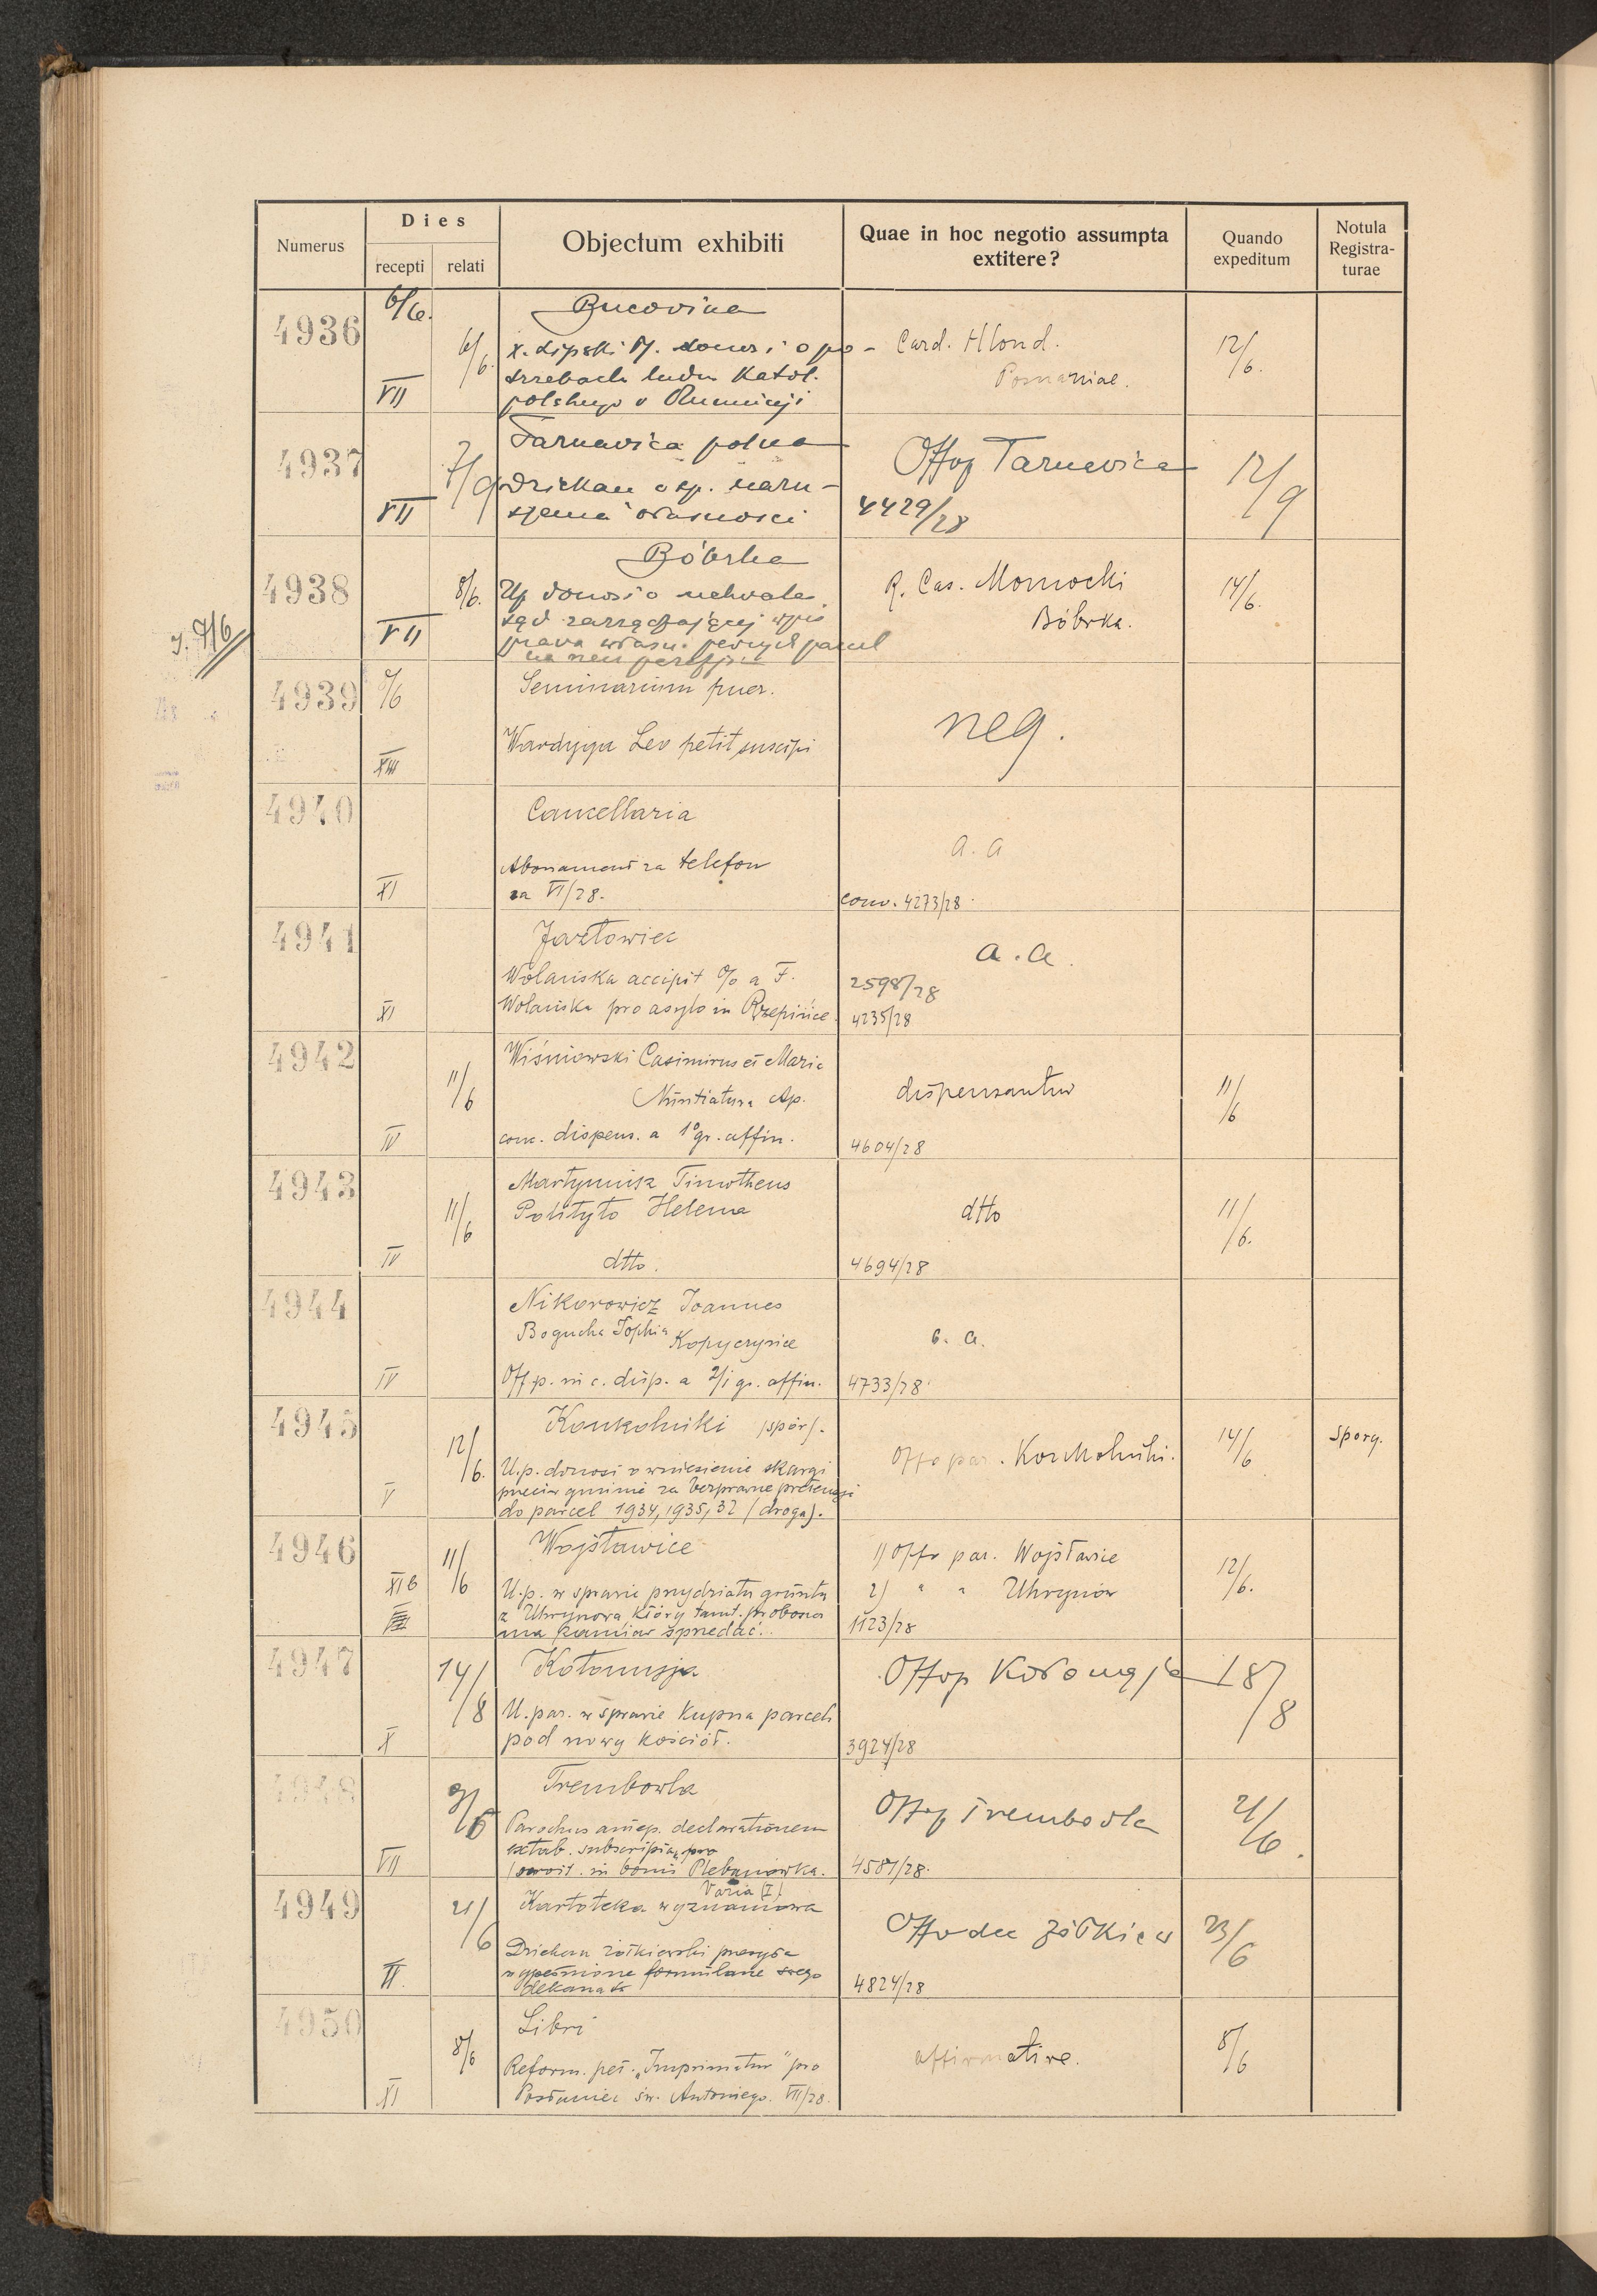 Numerus
Dies
recepti relati
Objectum exhibiti
Quae in hoc negotio assumpta
extitere?
Quando
expeditum
Notula
Registra-
turae
4936
6/6.
VII
6/6.
Bucovina
X. Lipski M. donosi o po-
trzebach ludu Katol.
polskiego w Rumunji
Card. Hlond.
Posnaniae.
12/6.
4937
VII
7/9
Tarnavica polna
Dziekan o sp. naru-
szenia własności
Offop Tarnavica
4429/28
12/9
y. 7/6
4938
VII
8/6.
Bóbrka
Up donosi o uchwale
sąd zarządzającej wpis
prawa własn. pewnych parcel
na
R. Cas. Mornocki
Bóbrka.
14/6.
4939
8/6
XIII
Seminarium puer.
Wardyga Leo petit suscipi
neg.
4940
XI
Cancellaria
Abonament za telefon
za VI/28.
a. a
conv. 4273/28.
4941
XI
Jazłowiec
Wolańska accipit % a F.
Wolańska pro asylo in Rzepińce.
a. a.
2598/28
4235/28
4942
IV
11/6
Wiśniowski Casimirus et Maria
Nuntiatura Ap.
conc. dispens. a 1° gr. affin.
dispensantur
4604/28
11/6
4943
IV
11/6
Martyniuk Timotheus
Polityło Helena
dtto.
dtto
4694/28
11/6.
4944
IV
Nikorowicz Joannes
Bogucha Sophia Kopyczyńce
Off.p. in c. disp. a 2/1 gr. affin.
a. a.
4733/28.
4945
V
12/6.
Konkolniki /spór/.
U.p. donosi o wniesienie skargi
przeciw gminie za bezprawne pretensji
do parcel 1934, 1935, 32 (droga).
Offo par. Konkolniki.
14/6
Sporg.
4946
XI b
11/6
Wojsławice
U.p. w sprawie przydziału gruntu
z Uhrynowa który tamt. proboszcz
ma zamiar sprzedać.
1) Offo par. Wojsławice
2) " " Uhrynów
1123/28
12/6.
4947
X
14/8
Kołomyja
U. par. w sprawie Kupna parceli
pod nowy kościół.
Offop Kołomyja
3924/28
18/8
4948
VII
9/6
Trembowla
Parochus accep. declarationem
extab. subscripią pro
servit. in bonis Plebanówka.
Offop Trembowla
4581/28.
21/6.
4949
II.
21/6
Varia (I)
Kartoteka wyznaniowa
Dziekan żółkiewski przesyła
wypełnione formularze swego
dekanatu
Offo dec Żółkiew
4824/28
23/6
4950
XI
8/6
Libri
Reform. pet. "Imprimatur" pro
Posłaniec św. Antoniego. VII/28.
affirmative.
8/6